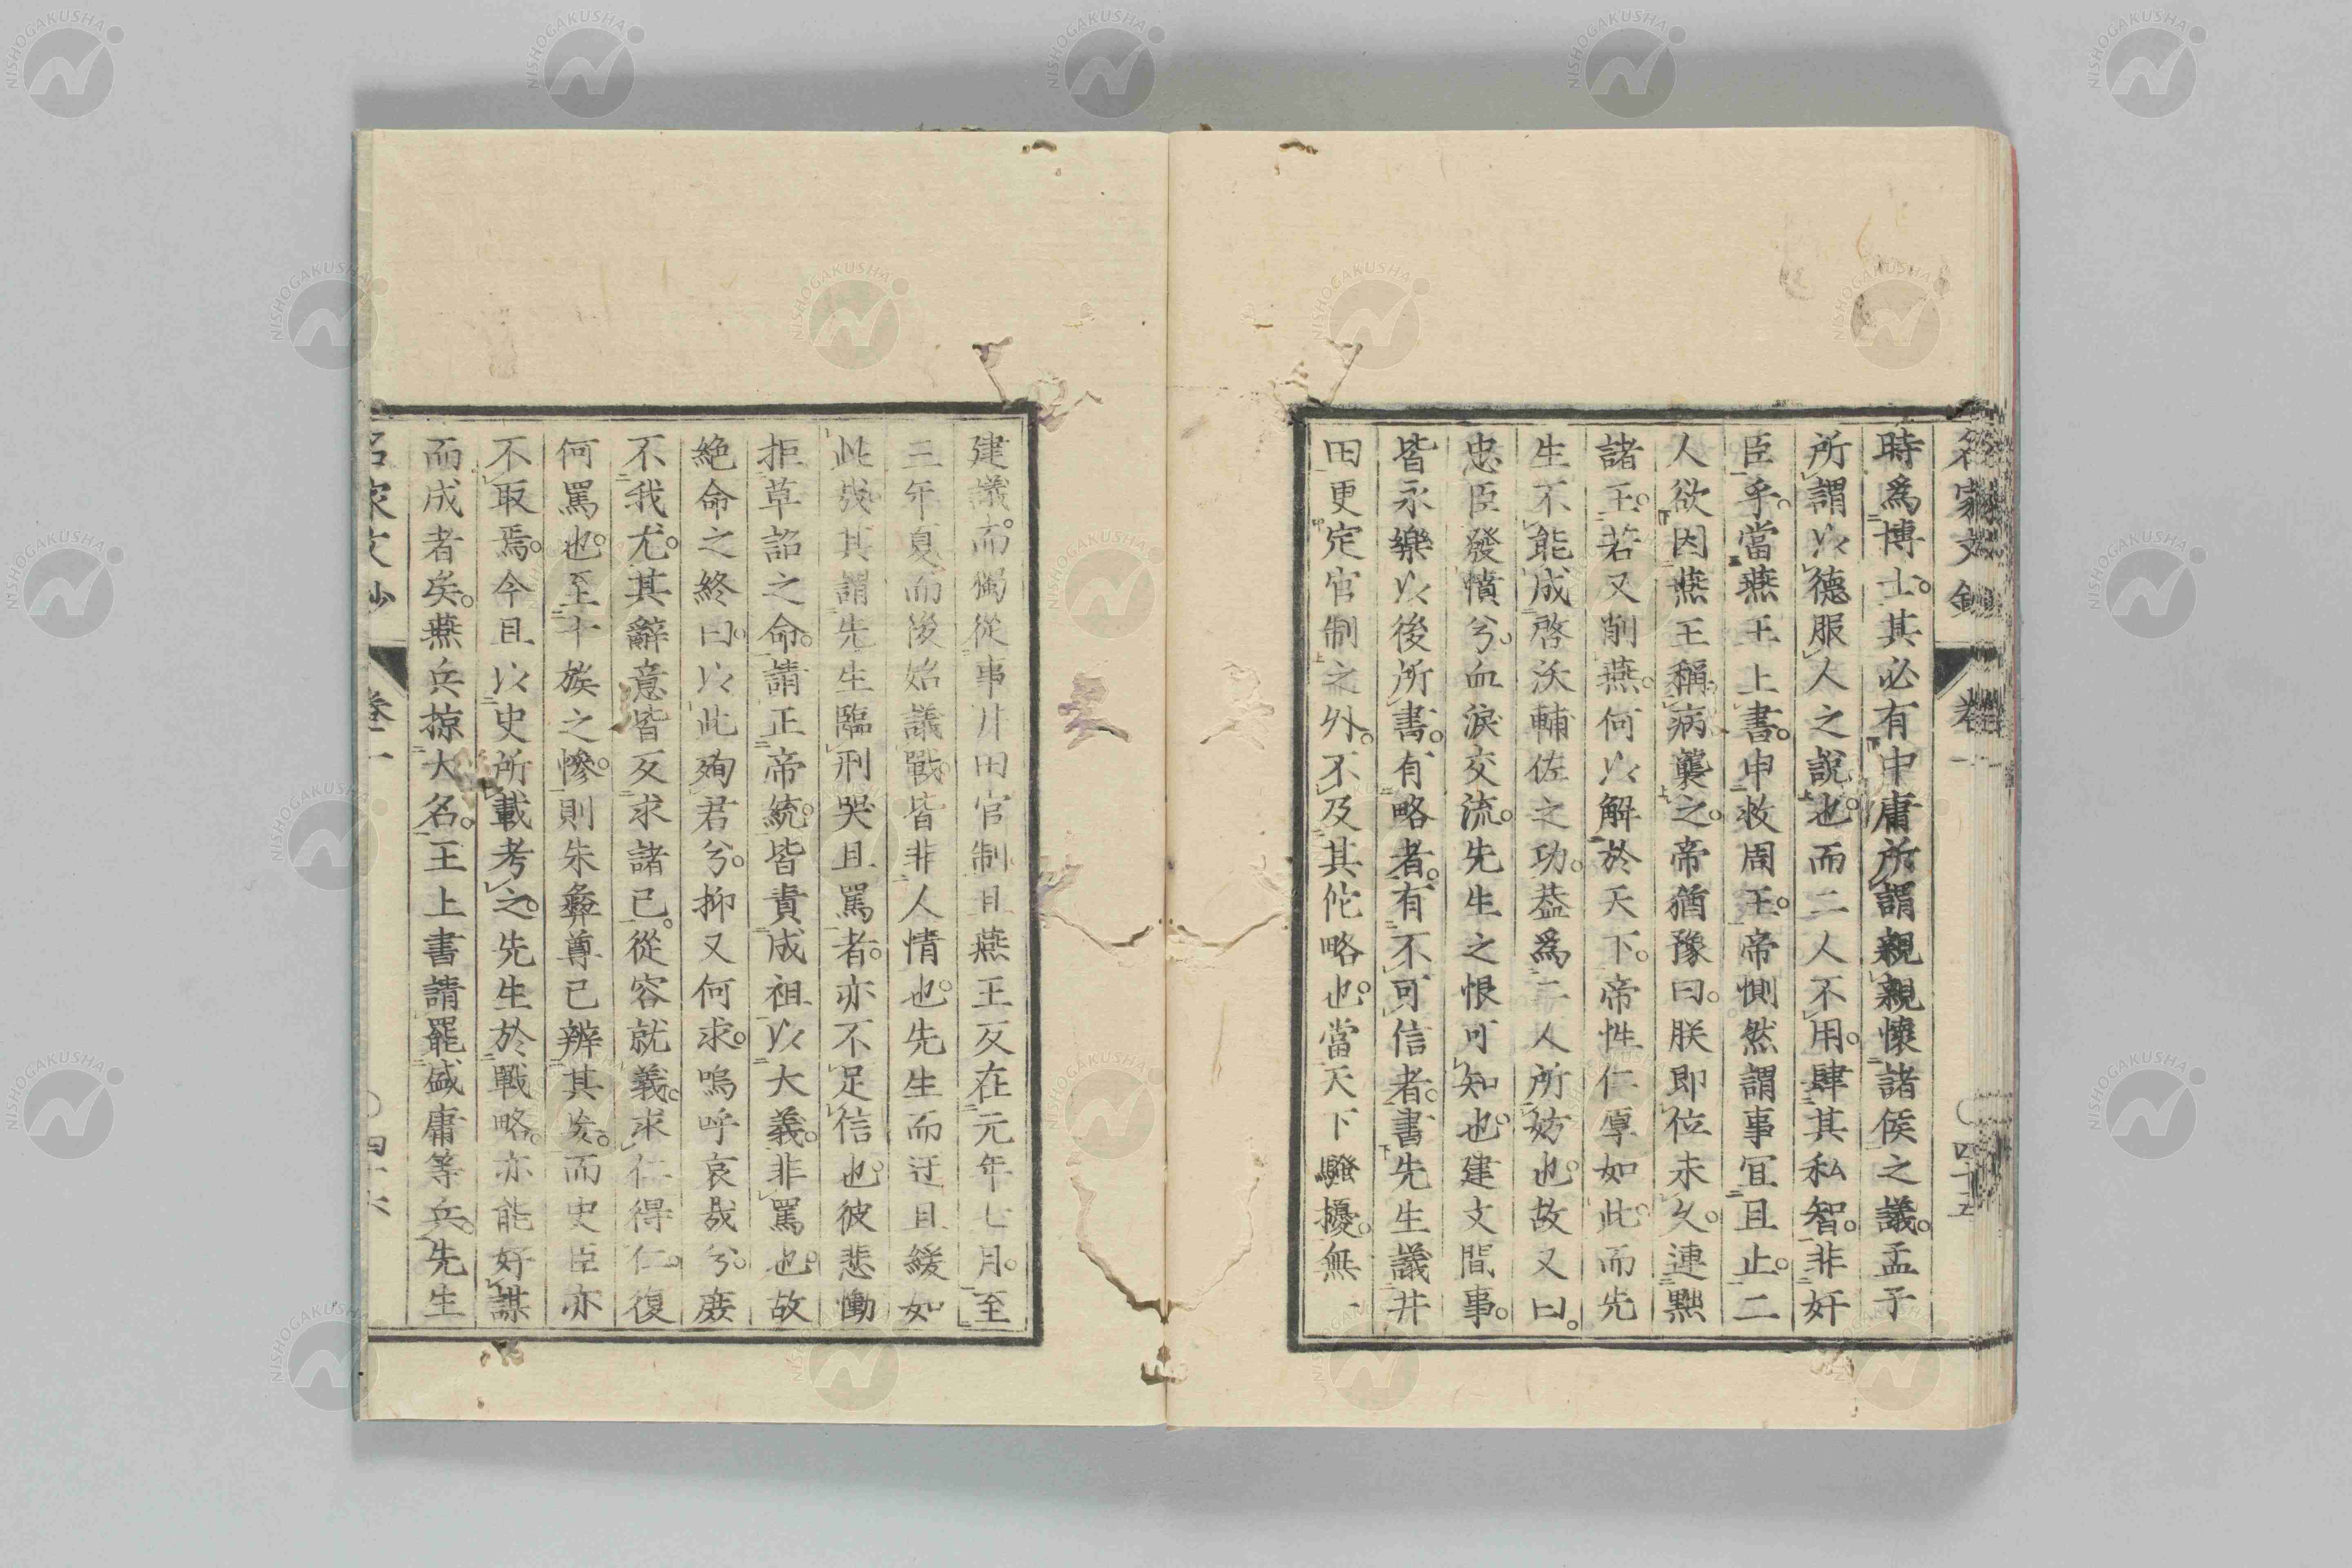 名家文鈔
卷一
四十五
時爲博士。其必有中庸所謂親親懷諸侯之議。孟子
所謂以德服人之說也。而二人不用。肆其私智。非奸
臣乎。當燕王上書。申救周王。帝惻然謂事宜且止。二
人欲因燕王稱病襲之。帝猶豫曰。朕即位未久。連黜
諸王。若又削燕。何以解於天下。帝性仁厚如此。而先
生不能成啓沃輔佐之功。葢爲二人所妨也。故又曰。
忠臣發憤兮。血淚交流。先生之恨可知也。建文間事。
皆永樂以後所書。有略者。有不可信者。書先生議井
田更定官制之外。不及其佗略也。當天下騷擾。無一
建議。而獨從事井田官制。且燕王反在元年七月。至
三年夏而後始議戰。皆非人情也。先生而迂且緩如
此哉。其謂先生臨刑哭且罵者。亦不足信也。彼悲慟
拒草詔之命。請正帝統。皆責成祖以大義。非罵也。故
絶命之終曰。以此殉君兮。抑又何求。嗚呼哀哉兮。庶
不我尤。其辭意皆反求諸己。從容就義。求仁得仁。復
何罵也。至十族之慘。則朱彝尊已辨其矣。而史臣亦
不取焉。今且以史所載考之。先生於戰略。亦能好謀
而成者矣。燕兵掠大名。王上書請罷盛庸等兵。先生
名家文鈔
卷一
四十六
NISHOGAKUSHA